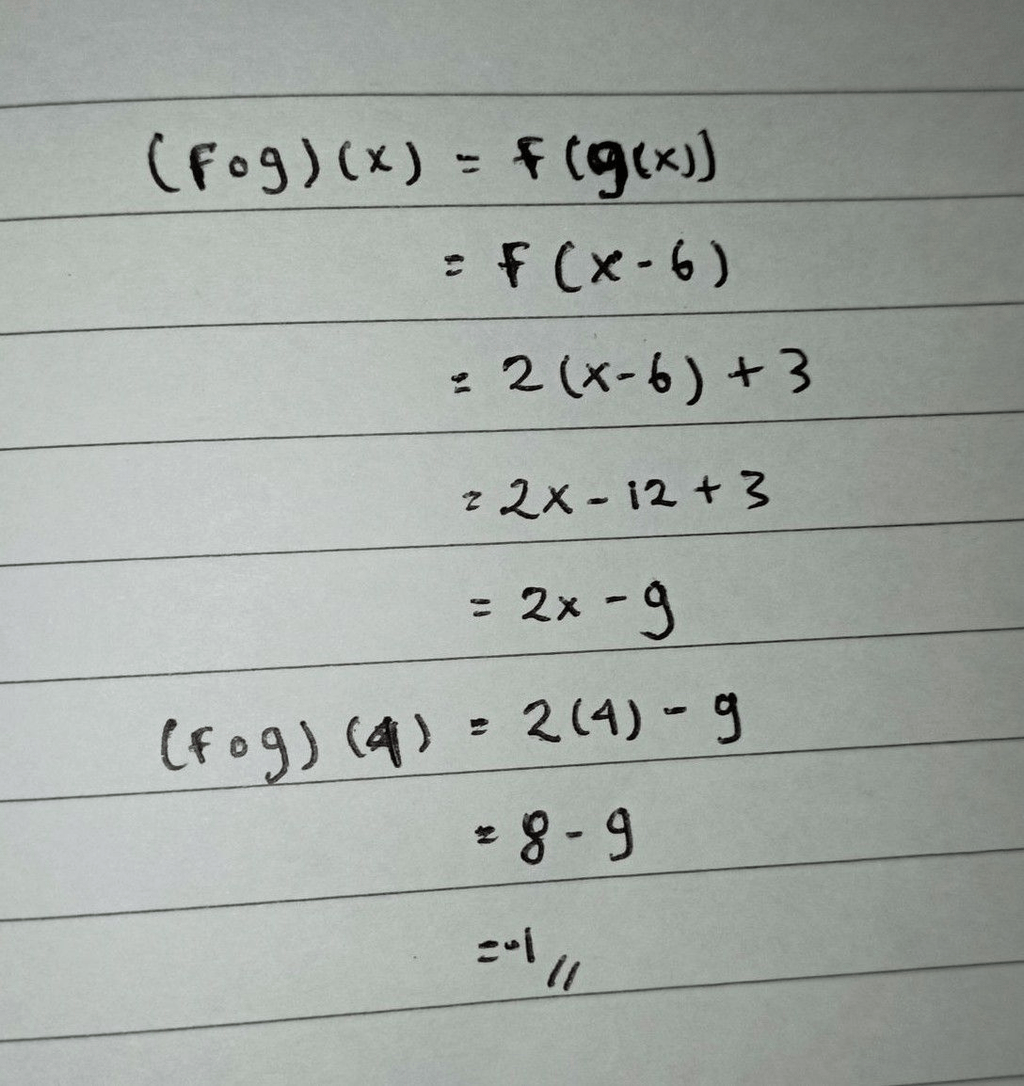 (fog)(x) = f(g(x))
= f(x-6)
= 2(x-6) + 3
= 2x - 12 + 3
= 2x - 9
(fog)(4) = 2(4) - 9
= 8 - 9
= -1 //